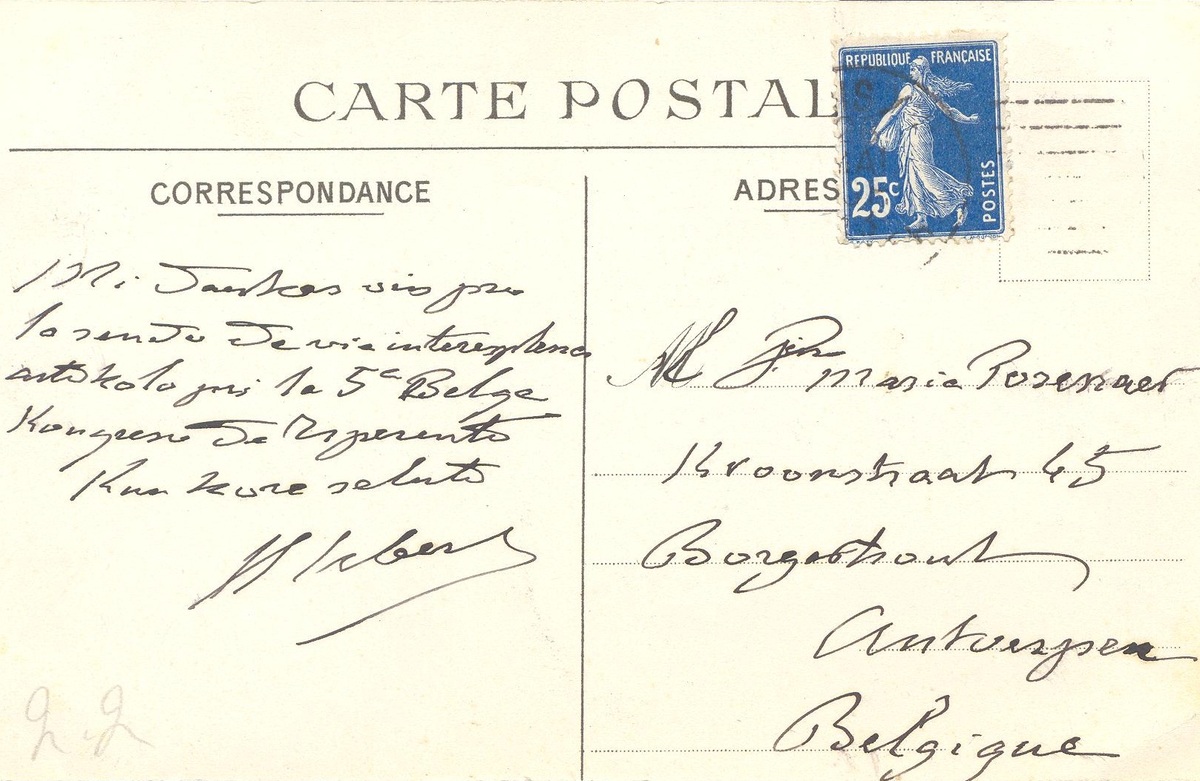 CARTE POSTAL
REPUBLIQUE FRANÇAISE
25c
POSTES
CORRESPONDANCE
Mi dankas vin pro
la sendo de via interesplena
artikolo pri la 5a Belga
Kongreso de Esperanto
Kun kora saluto
ADRES
Mlle Maria Posenaer
Kroonstraat 45
Borgerhout
Antwerpen
Belgique